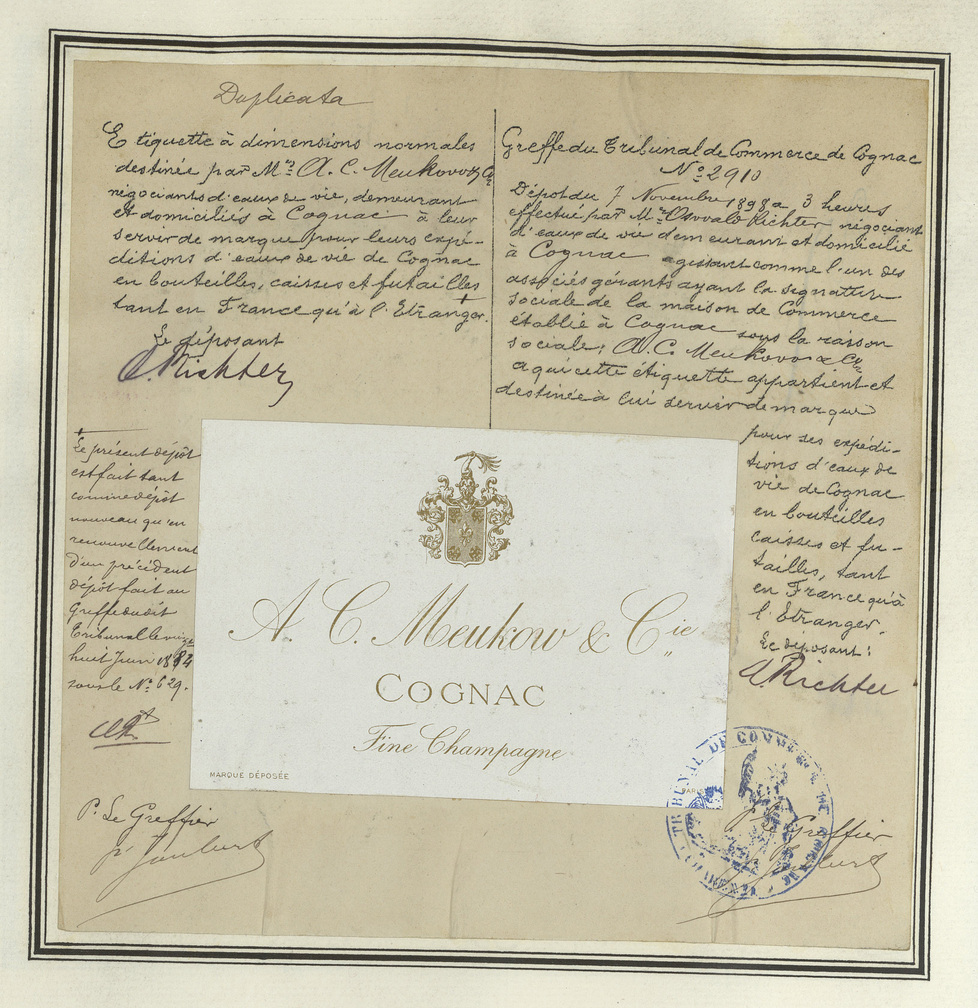 Duplicata
Etiquette à dimensions normales
destinée par Mrs A. C. Meukow & Cie
négociants d'eaux de vie, demeurant
et domiciliés à Cognac à leur
servir de marque pour leurs expé-
ditions d'eaux de vie de Cognac
en bouteilles, caisses et futailles
tant en France qu'à l'Etranger. +
Le déposant
O. Richter
+
Le présent dépôt
est fait tant
comme dépôt
nouveau qu'en
renouvellement
d'un précédent
dépôt fait au
Greffe dudit
Tribunal le vingt
huit Juin 1884
sous le No 629.
P. Le Greffier
Greffe du Tribunal de Commerce de Cognac
No 2910
Dépôt du 7 Novembre 1898 à 3 heures
effectué par Mr Oswald Richter négociant
d'eaux de vie demeurant et domicilié
à Cognac agissant comme l'un des
associés gérants ayant la signature
sociale de la maison de Commerce
établie à Cognac sous la raison
sociale: A. C. Meukow & Cie
à qui cette étiquette appartient et
destinée à lui servir de marque
pour ses expédi-
tions d'eaux de
vie de Cognac
en bouteilles
caisses et fu-
tailles, tant
en France qu'à
l'Etranger.
Le déposant:
O. Richter
A. C. Meukow & Cie.
COGNAC
Fine Champagne
MARQUE DÉPOSÉE
PARIS
TRIBUNAL DE COMMERCE DE COGNAC
Le Greffier